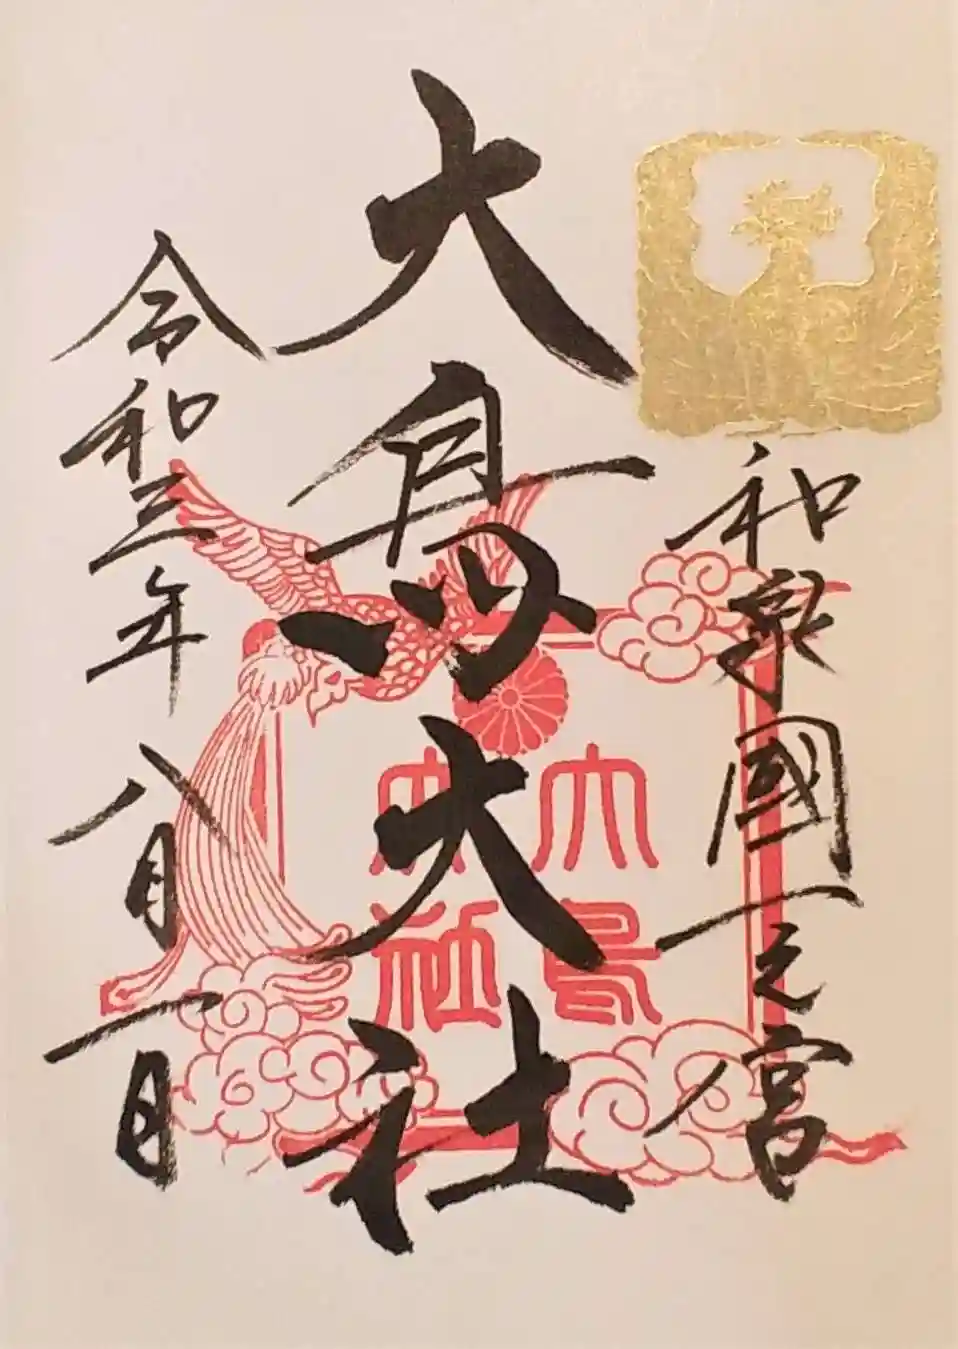 和泉國一之宮
大鳥大社
大鳥
大社
令和三年八月一日